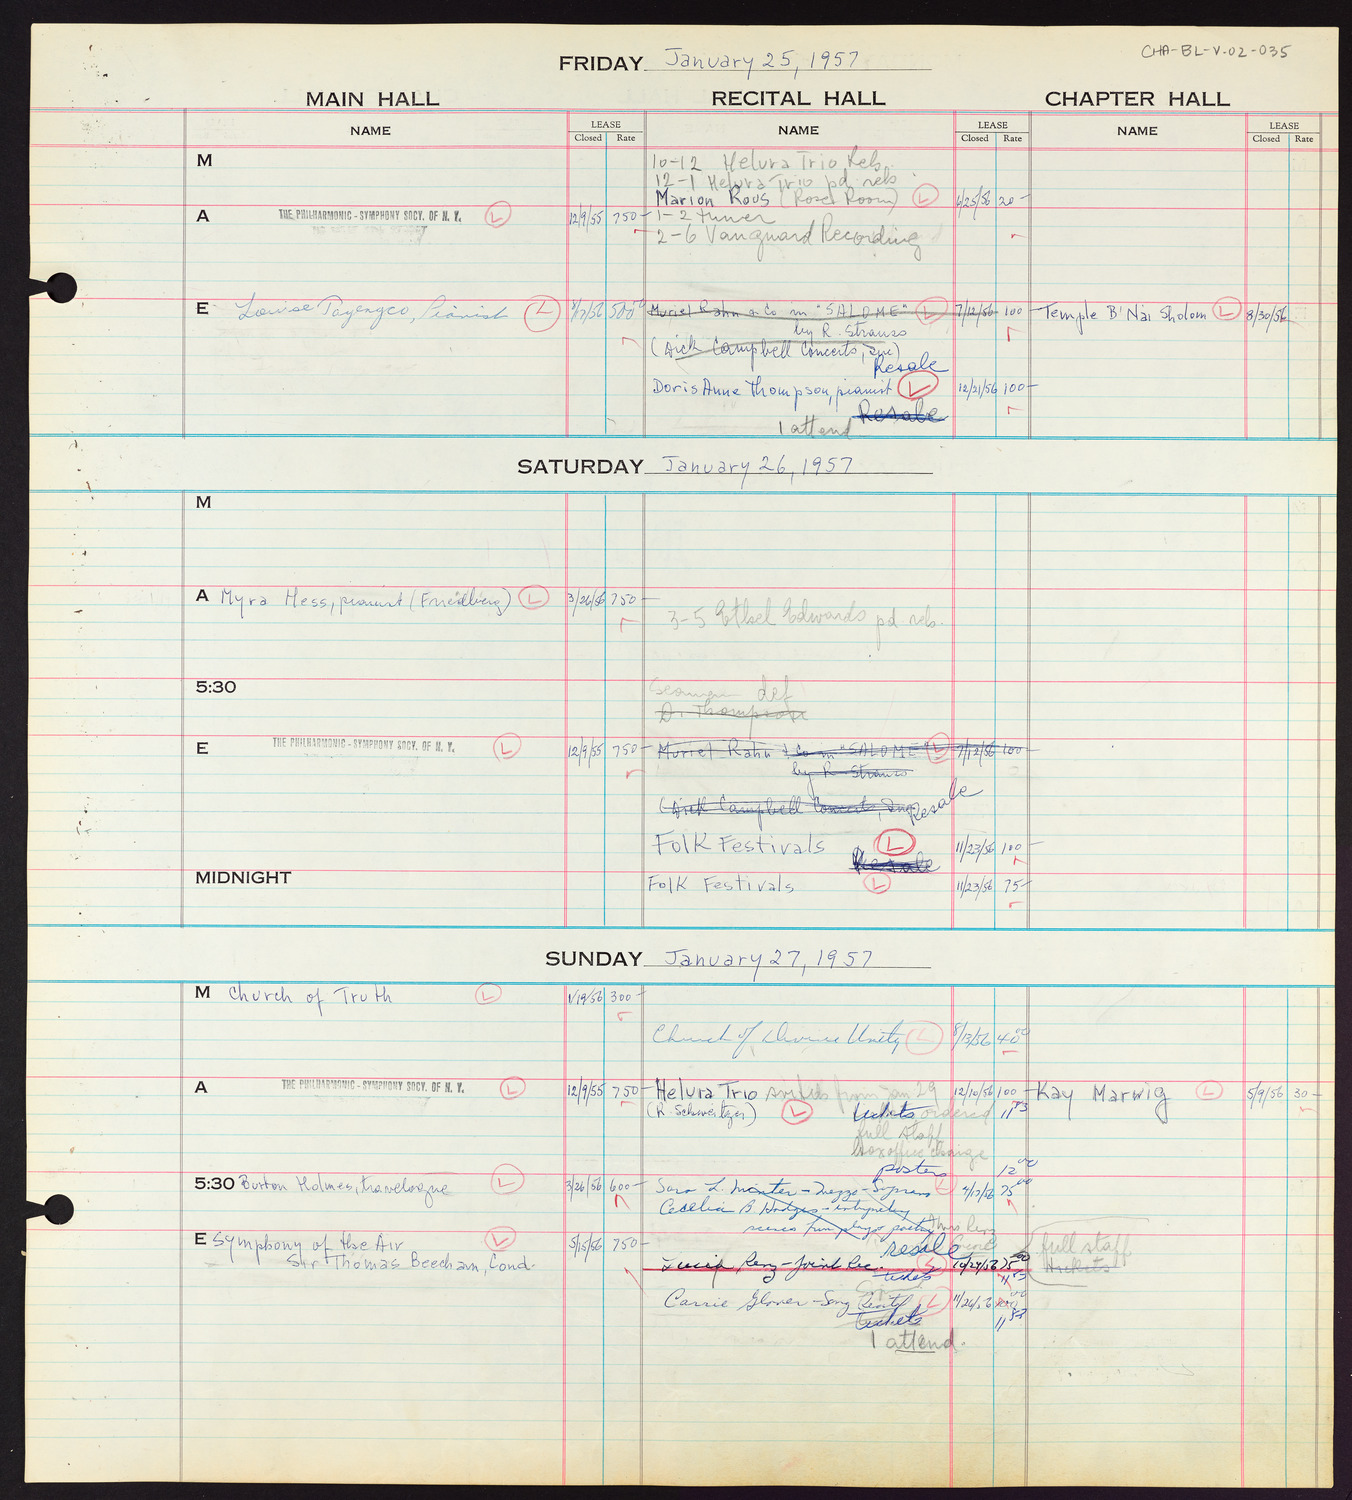 CHA-BL-V.02-035
FRIDAY January 25, 1957
MAIN HALL RECITAL HALL CHAPTER HALL
NAME LEASE Closed Rate NAME LEASE Closed Rate NAME LEASE Closed Rate
M 10-12 Helura Trio Rehs.
12-1 Helura Trio pd rehs
Marion Roos (Rose Room) L 4/25/56 20-
A THE PHILHARMONIC-SYMPHONY SOCY. OF N. Y. L 12/9/55 750- 1-2 tuner
2-6 Vanguard Recording
E Louise Tayengco, Pianist L 500 Muriel Rahn & Co in "SALOME" L 7/12/56 100 Temple B'Nai Sholom L 8/30/56
by R. Strauss
(Dick Campbell Concerts, Inc)
Resale
Doris Anne Thompson, pianist L 12/21/56 100-
Resale
1 attend
SATURDAY January 26, 1957
M
A Myra Hess, pianist (Friedberg) L 3/26/56 750-
3-5 Ethel Edwards pd rehs.
5:30 def
D. Thompson
E THE PHILHARMONIC-SYMPHONY SOCY. OF N. Y. L 12/9/55 750- Muriel Rahn & Co in "SALOME" L 7/12/56 100-
by R Strauss
(Dick Campbell Concerts, Inc) Resale
Folk Festivals L 11/23/56 100-
Resale
MIDNIGHT Folk Festivals L 11/23/56 75-
SUNDAY January 27, 1957
M Church of Truth L 1/19/56 300-
Church of Divine Unity L 8/13/56 40 00
A THE PHILHARMONIC-SYMPHONY SOCY. OF N. Y. L 12/9/55 750- Helura Trio switched from Jan 29 12/10/56 100- Kay Marwig L 5/9/56 30-
(R. Schweitzer) L tickets ordered 11 83
full staff
box office charge
posters 12 00
5:30 Burton Holmes, travelogue L 3/26/56 600- Sara L. Minter - Mezzo-Soprano L 4/17/56 75 00
Cecelia B. Hodges - interpretive
scenes from plays poetry
E Symphony of the Air L 5/15/56 750- resale full staff
Sir Thomas Beecham, Cond. Renz - Joint Rec. L 10/29/56 75 00 tickets
tickets 11 83
Carrie Glover - Song Recital L 11/26/56 100 00
tickets 11 83
1 attend.